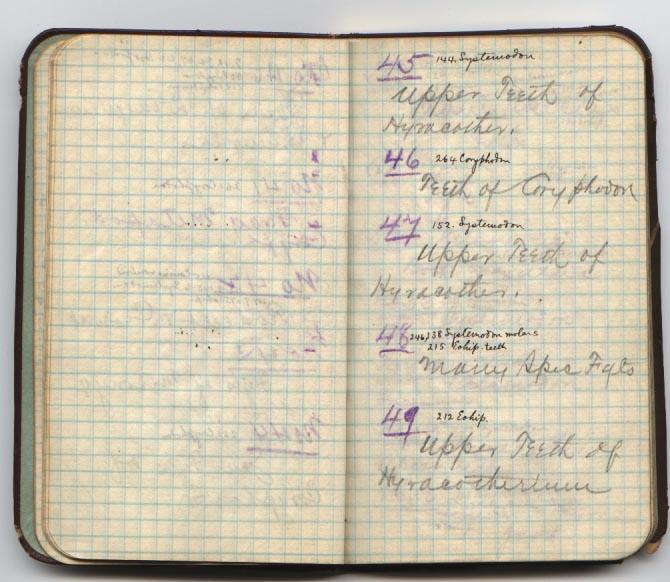 45 144. Systemodon
Upper Teeth of
Hyracother.
46 264 Coryphodon
Teeth of Coryphodon
47 152. Systemodon
Upper Teeth of
Hyracother.
48 246,138 Systemodon molars
215 Eohip. teeth
Many Spec Fgts
49 212 Eohip.
Upper Teeth of
Hyracotherium